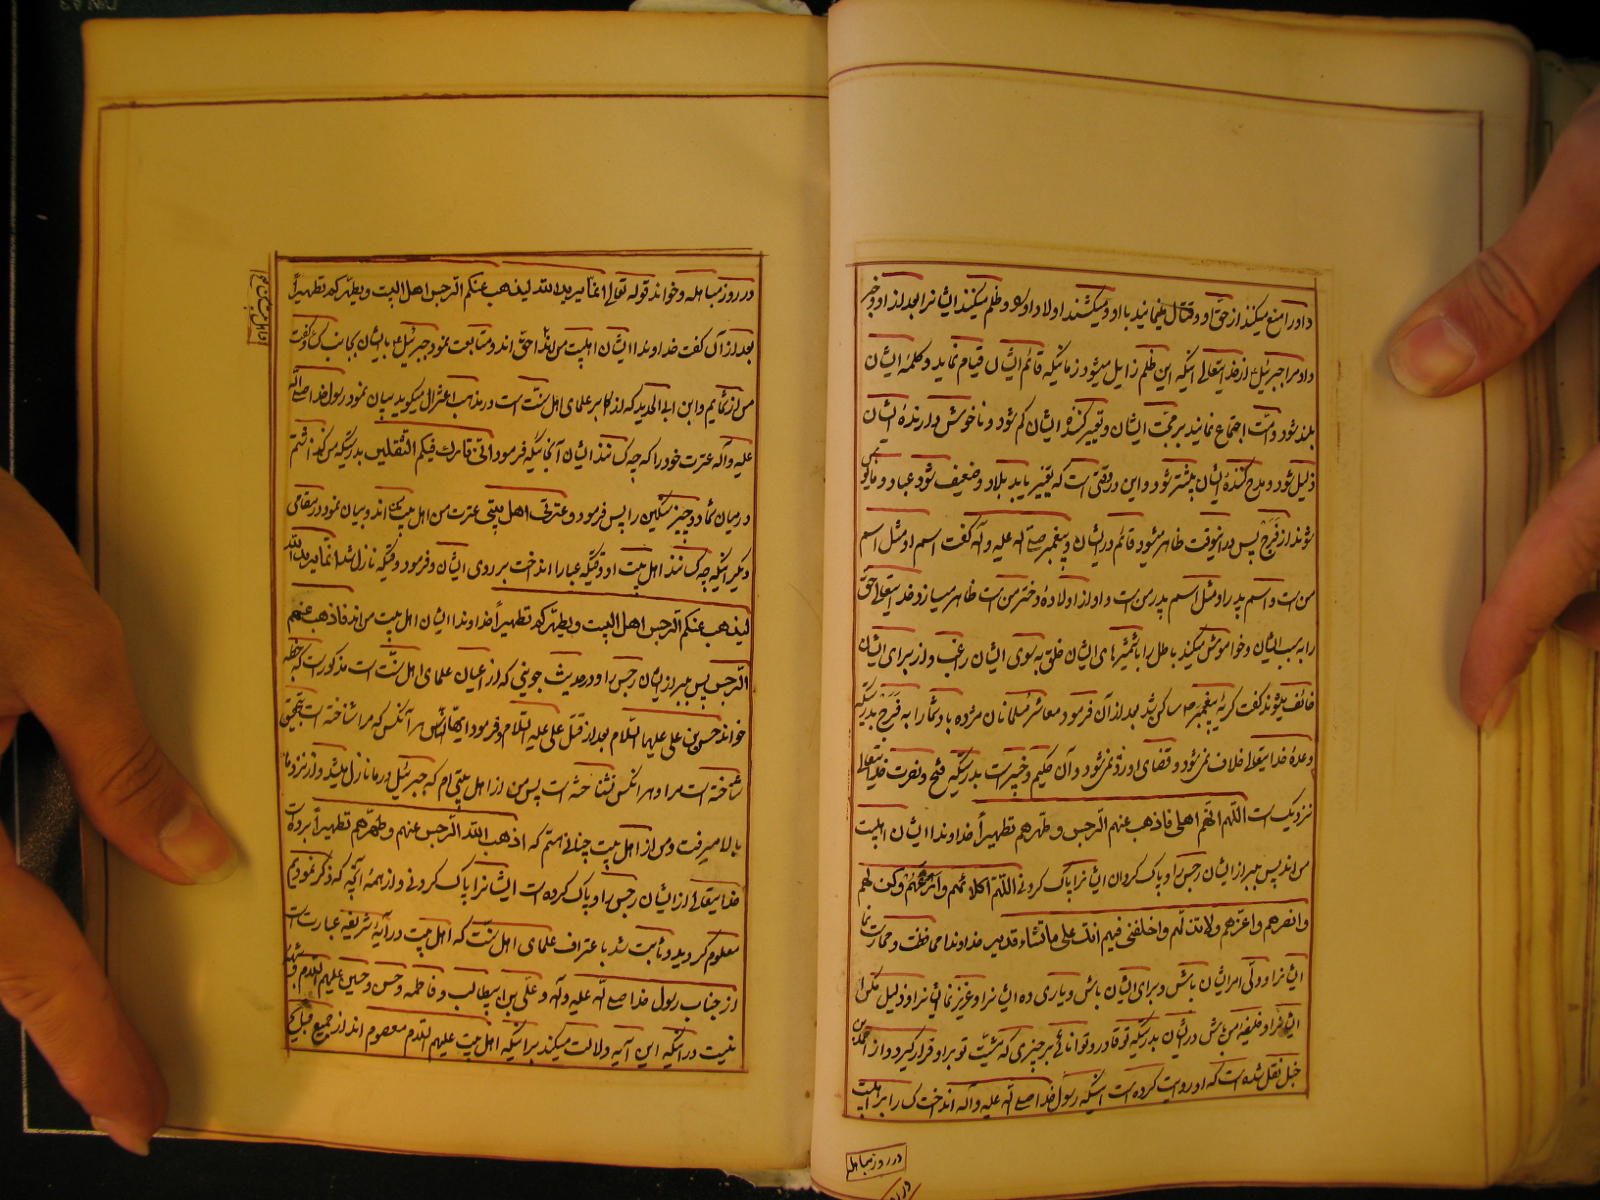 داورا منع میکنند از حق او و قتال مینمایند با او و میکشند اولاد او را و ظلم میکنند ایشانرا بعد از او و خبر
داد مرا جبرئیل از خدایتعالی اینکه این ظلم زایل میشود زمانیکه قائم ایشان قیام نماید و کلمهٔ ایشان
بلند شود و امت اجتماع نمایند بر محبت ایشان و کم شود و ناخوش دارندهٔ ایشان
ذلیل شود و مدح کنندهٔ ایشان بیشتر شود و این در وقتی است که تغییر یابد بلاد و ضعیف شود عباد و مایوس
شوند از فرج پس در آنوقت ظاهر میشود قائم در ایشان و پیغمبر صلی الله علیه و آله گفت اسم او مثل اسم
من است و اسم پدر او مثل اسم پدر من است و او از اولادهٔ دختر من است ظاهر میسازد خدایتعالی حق
را به سبب ایشان و خواموش میکند باطل را با شمشیرهای ایشان خلق به سوی ایشان راغب و از برای ایشان
خائف میشوند گفت گریهٔ پیغمبر ص ساکن شد بعد از آن فرمود معاشر مسلمانان مژده باد شما را به فرج بدرستیکه
وعدهٔ خدایتعالی خلاف نمیشود و قضای او رد نمیشود و آن حکیم و خبیر است بدرستیکه فتح و نصرت خدایتعالی
نزدیک است اللهم انهم اهلی فاذهب عنهم الرجس و طهرهم تطهیراً خداوندا ایشان اهلبیت
من اند پس ببر از ایشان رجس را و پاک کردان ایشانرا پاک کردنی اللهم اکلائهم وارعهم وکن لهم
وانصرهم واعزهم ولا تذلهم واخلفنی فیهم انک علی ما تشاء قدیر خداوندا محافظت و حمایت نما
ایشانرا و ولی امر ایشان باش و برای ایشان باش و یاری ده ایشانرا و عزیز نما ایشانرا و ذلیل مکن
ایشانرا و خلیفه من باش در ایشان بدرستیکه تو قادر و توانائی بر چیزی که مشیت تو بر او قرار گیرد و از احمد بن
حنبل نقل شده است که او روایت کرده است اینکه رسول خدا صلی الله علیه و آله انداخت کسا را بر اهلبیت
در روز مباهله
در روز مباهله و خواند قوله تعالی انما یرید الله لیذهب عنکم الرجس اهل البیت ویطهرکم تطهیراً
بعد از آن گفت خداوندا ایشان اهلبیت من اند احق اند و متابعت نمود جبرئیل با ایشان بجانب کسا و گفت
من از شمایم و ابن ابی الحدید که از اکابر علمای اهل سنت است در مذهب اعتزال میگوید بیان نمود رسول خدا صلی الله
علیه و آله عترت خود را که چه کسانند ایشان آنجائیکه فرمود انی تارک فیکم الثقلین بدرستیکه من گذاشتم
در میان شما دو چیز سنگین را پس فرمود وعترتی اهل بیتی عترت من اهل بیت اند و بیان نمود در مقامی
دیگر اینکه چه کسانند اهل بیت او وقتیکه عبا را انداخت بر روی ایشان و فرمود وقتیکه نازل شد انما یرید الله
لیذهب عنکم الرجس اهل البیت ویطهرکم تطهیراً خداوندا ایشان اهل بیت من اند فاذهب عنهم
الرجس پس ببر از ایشان رجس را و در حدیث جوینی که از اعیان علمای اهل سنت است مذکور است که خطبه
خواند حسن بن علی علیهما السلام بعد از قتل علی علیه السلام و فرمود ایها الناس هر آنکس که مرا شناخته است بتحقیق
شناخته است مرا و هر آنکس نشناخته است پس من از اهل بیتی ام که جبرئیل در ما نازل میشد و از نزد ما
بالا میرفت و من از اهل بیت چنانی هستم که اذهب الله الرجس عنهم وطهرهم تطهیراً برده است
خدایتعالی از ایشان رجس را و پاک کرده است ایشانرا پاک کردنی و از همهٔ آنچه که ذکر نمودیم
معلوم گردید و ثابت شد با عتراف علمای اهل سنت که اهل بیت در آیهٔ شریفه عبارت است
از جناب رسول خدا صلی الله علیه و آله و علی بن ابیطالب و فاطمه و حسن و حسین علیهم السلام و شبهه
نیست در اینکه این آیه دلالت میکند بر اینکه اهل بیت علیهم السلام معصوم اند از جمیع قبایح